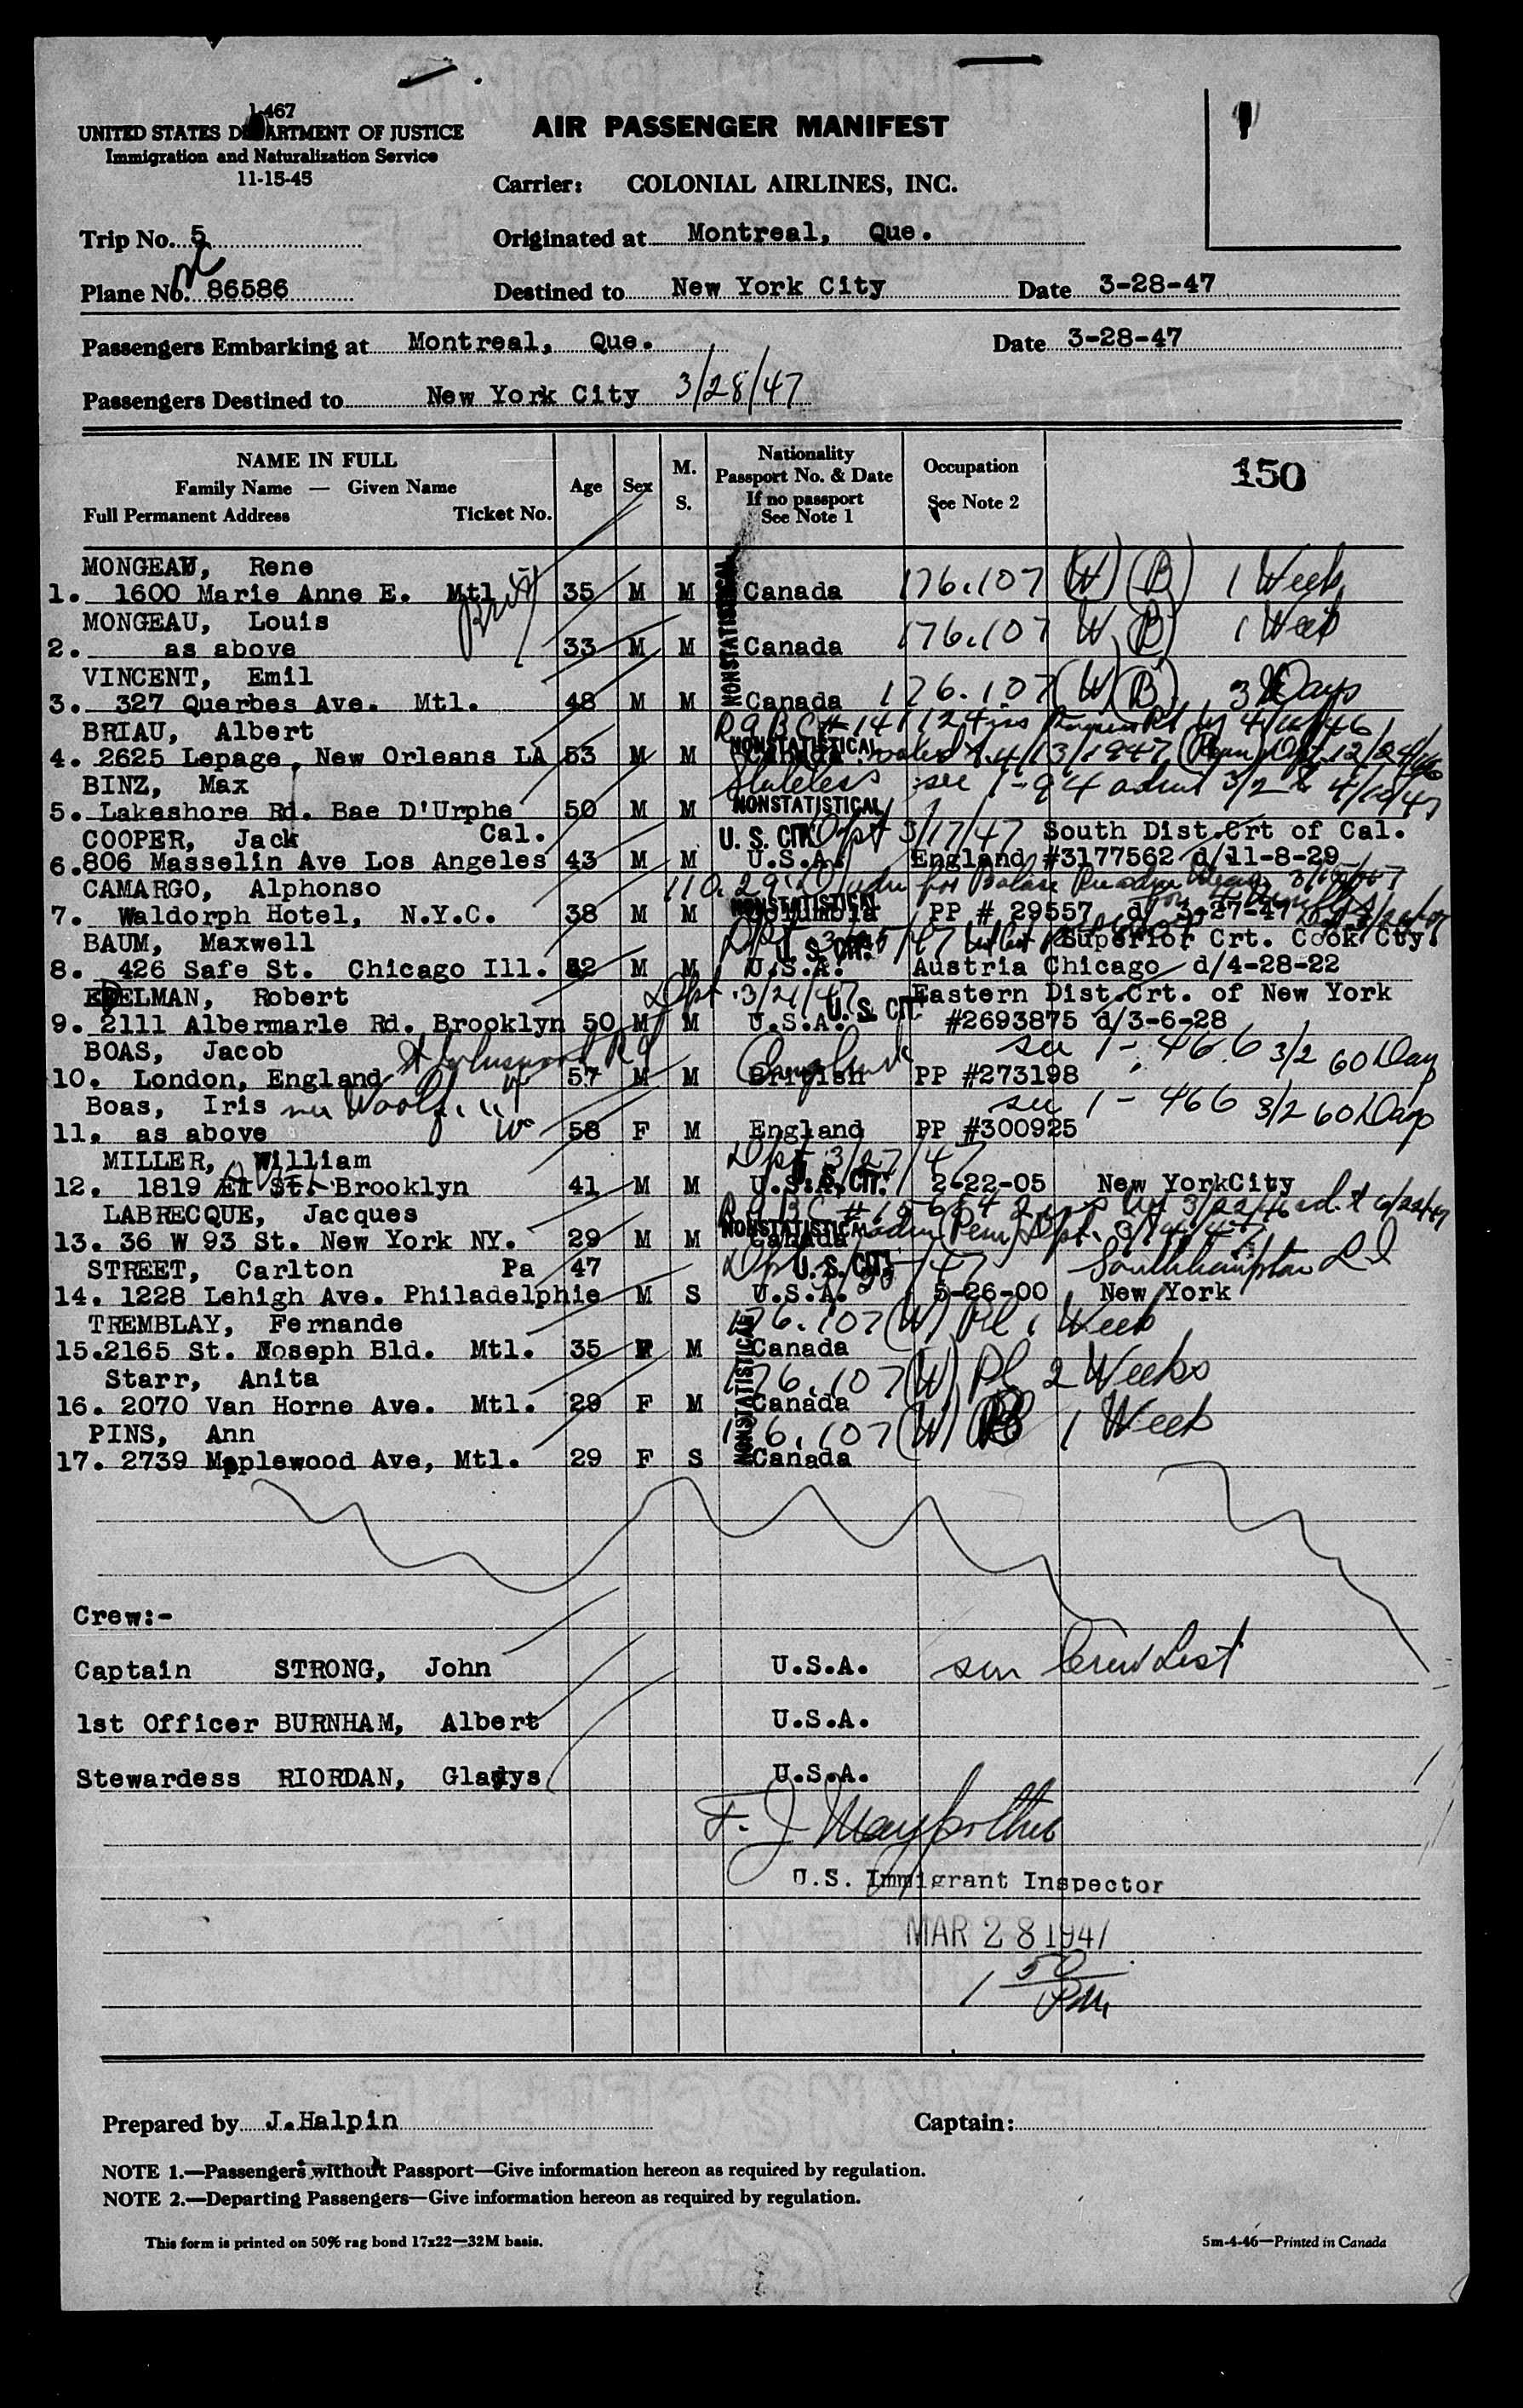 I-467
UNITED STATES DEPARTMENT OF JUSTICE
Immigration and Naturalization Service
11-15-45
AIR PASSENGER MANIFEST
Carrier: COLONIAL AIRLINES, INC.
Trip No. 5
Originated at Montreal, Que.
Plane No. 86586
Destined to New York City Date 3-28-47
Passengers Embarking at Montreal, Que. Date 3-28-47
Passengers Destined to New York City 3/28/47
NAME IN FULL
Family Name — Given Name
Full Permanent Address Ticket No.
Age Sex M. S.
Nationality
Passport No. & Date
If no passport
See Note 1
Occupation
See Note 2
150
MONGEAU, Rene
1. 1600 Marie Anne E. Mtl 35 M M Canada 176.107 (W) (B) 1 Week
MONGEAU, Louis
2. as above 33 M M Canada 176.107 W (B) 1 Week
NONSTATISTICAL
VINCENT, Emil
3. 327 Querbes Ave. Mtl. 48 M M Canada 176.107 (W) (B) 3 Days
BRIAU, Albert
4. 2625 Lepage, New Orleans LA 53 M M Canada NONSTATISTICAL 4/13/1947
BINZ, Max Stateless see I-94
5. Lakeshore Rd. Bae D'Urphe 50 M M NONSTATISTICAL
COOPER, Jack Cal. U. S. CIT. Dpt 3/17/47 South Dist.Crt of Cal.
6. 806 Masselin Ave Los Angeles 43 M M U.S.A. England #3177562 d/11-8-29
CAMARGO, Alphonso
7. Waldorph Hotel, N.Y.C. 38 M M Columbia NONSTATISTICAL PP # 29557 d/ 3-27-47
BAUM, Maxwell U. S. CIT. Superior Crt. Cook Cty.
8. 426 Safe St. Chicago Ill. 52 M M U.S.A. Austria Chicago d/4-28-22
EDELMAN, Robert Dpt. 3/21/47 U. S. CIT Eastern Dist.Crt. of New York
9. 2111 Albermarle Rd. Brooklyn 50 M M U.S.A. #2693875 d/3-6-28
BOAS, Jacob see I-466 3/2 60 Day
10. London, England 57 M M British PP #273198
Boas, Iris nee Woolf see I-466 3/2 60 Days
11. as above 58 F M England PP #300925
MILLER, William Dpt 3/27/47
12. 1819 St. Brooklyn 41 M M U.S.A. U. S. CIT. 2-22-05 New YorkCity
LABRECQUE, Jacques
13. 36 W 93 St. New York NY. 29 M M Canada NONSTATISTICAL
STREET, Carlton Pa 47 U. S. CIT. Southhampton L I
14. 1228 Lehigh Ave. Philadelphie M S U.S.A. 5-26-00 New York
TREMBLAY, Fernande 176.107 (W) Pl 1 Week
15. 2165 St. Joseph Bld. Mtl. 35 F M Canada
Starr, Anita 176.107 (W) Pl 2 Weeks
16. 2070 Van Horne Ave. Mtl. 29 F M Canada
NONSTATISTICAL
PINS, Ann 176.107 (W) 1 Week
17. 2739 Maplewood Ave, Mtl. 29 F S Canada
Crew:-
Captain STRONG, John U.S.A. see Crew List
1st Officer BURNHAM, Albert U.S.A.
Stewardess RIORDAN, Gladys U.S.A.
U.S. Immigrant Inspector
MAR 28 1947
1 50 PM
Prepared by J.Halpin Captain:
NOTE 1.—Passengers without Passport—Give information hereon as required by regulation.
NOTE 2.—Departing Passengers—Give information hereon as required by regulation.
This form is printed on 50% rag bond 17x22—32M basis. 5m-4-46—Printed in Canada